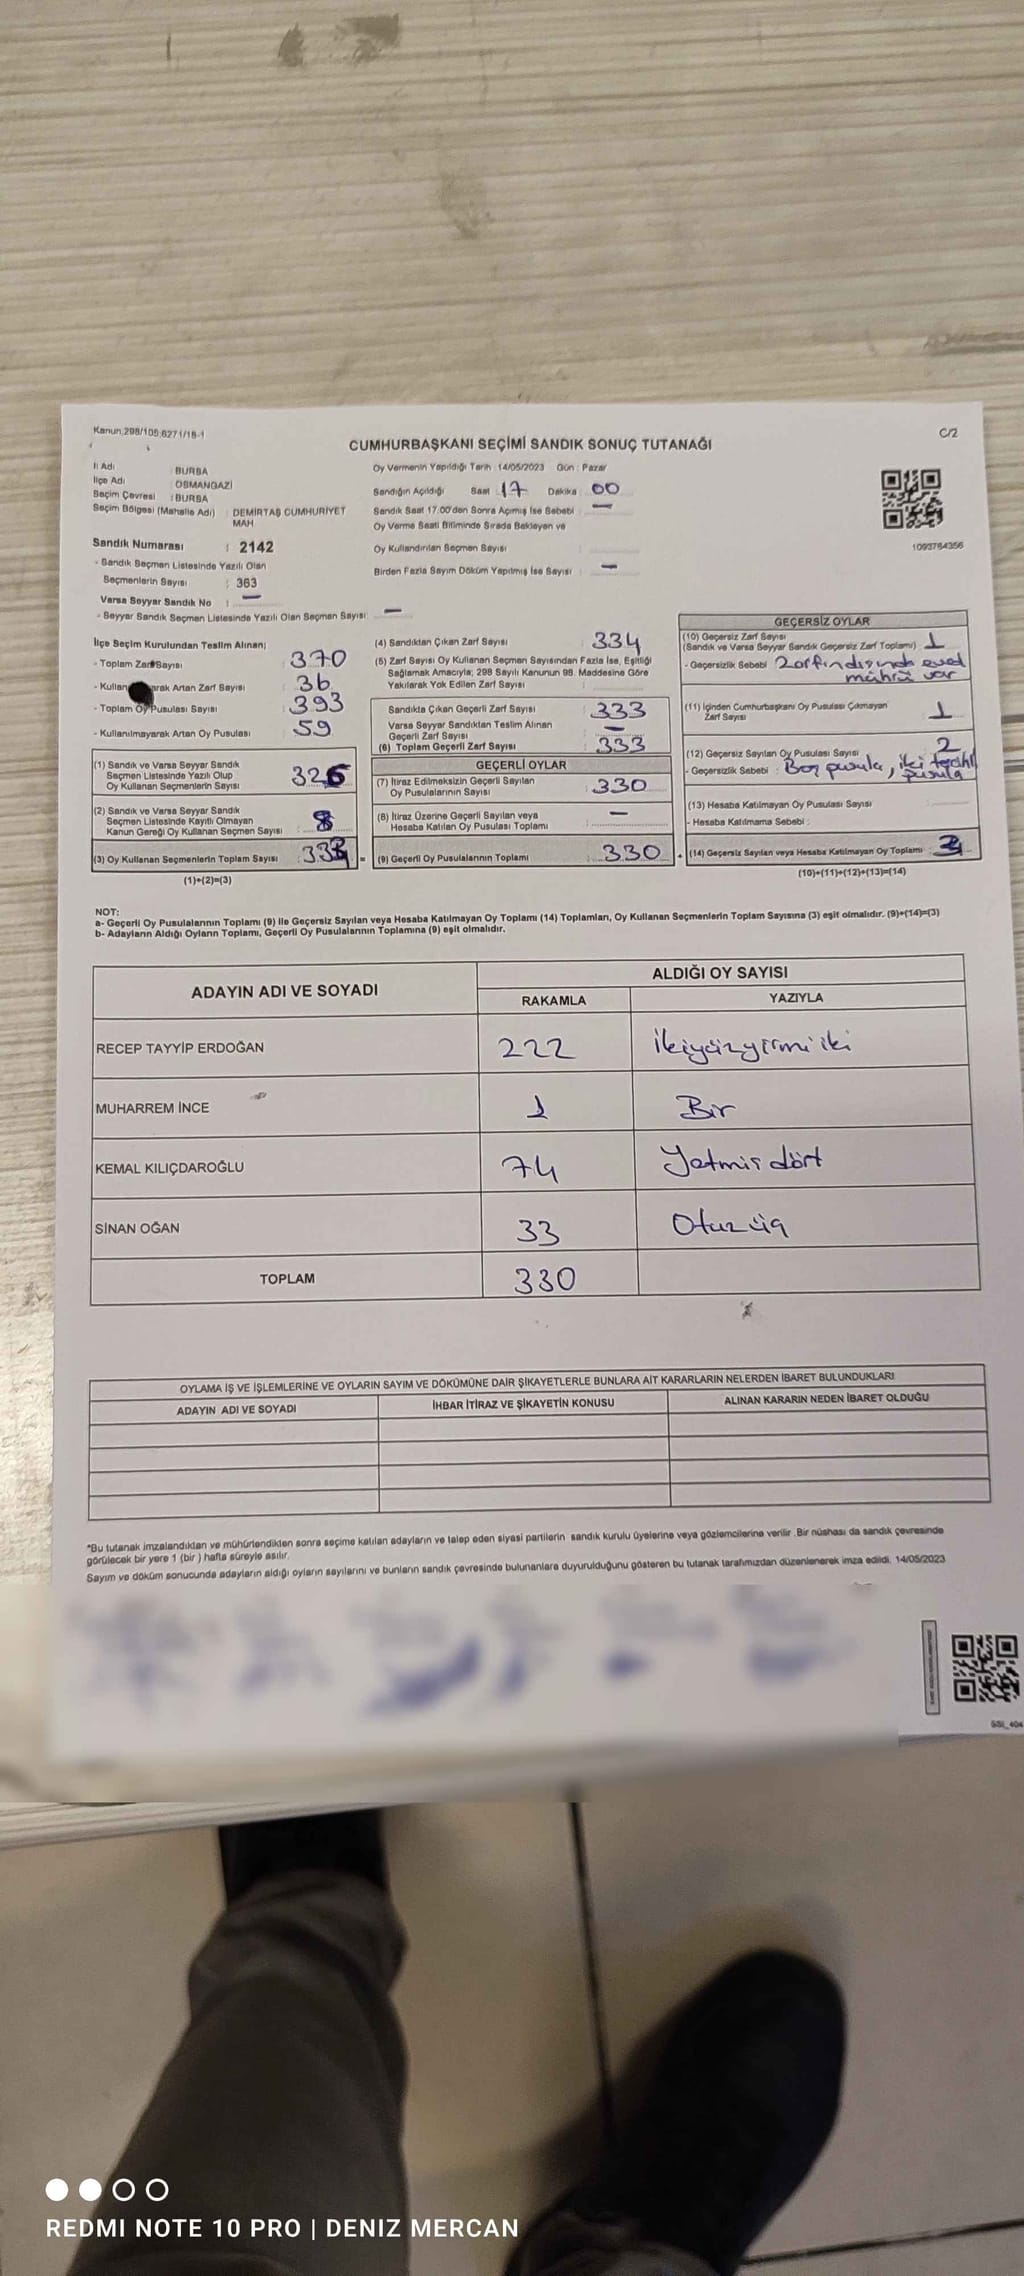 Kanun:298/105;6271/18-1
C/2
CUMHURBAŞKANI SEÇİMİ SANDIK SONUÇ TUTANAĞI
İl Adı : BURSA
İlçe Adı : OSMANGAZİ
Seçim Çevresi : BURSA
Seçim Bölgesi (Mahalle Adı) : DEMİRTAŞ CUMHURİYET
MAH
Sandık Numarası : 2142
- Sandık Seçmen Listesinde Yazılı Olan
Seçmenlerin Sayısı : 363
Varsa Seyyar Sandık No : —
- Seyyar Sandık Seçmen Listesinde Yazılı Olan Seçmen Sayısı: —
Oy Vermenin Yapıldığı Tarih : 14/05/2023 Gün : Pazar
Sandığın Açıldığı Saat : 17 Dakika : 00
Sandık Saat 17.00'den Sonra Açılmış İse Sebebi : —
Oy Verme Saati Bitiminde Sırada Bekleyen ve
Oy Kullandırılan Seçmen Sayısı :
Birden Fazla Sayım Döküm Yapılmış İse Sayısı : —
1093784356
İlçe Seçim Kurulundan Teslim Alınan;
- Toplam Zarf Sayısı : 370
- Artan Zarf Sayısı : 36
- Toplam Oy Pusulası Sayısı : 393
- Kullanılmayarak Artan Oy Pusulası : 59
(1) Sandık ve Varsa Seyyar Sandık
Seçmen Listesinde Yazılı Olup
Oy Kullanan Seçmenlerin Sayısı :
(2) Sandık ve Varsa Seyyar Sandık
Seçmen Listesinde Kayıtlı Olmayan
Kanun Gereği Oy Kullanan Seçmen Sayısı : 8
(3) Oy Kullanan Seçmenlerin Toplam Sayısı :
(1)+(2)=(3)
(4) Sandıktan Çıkan Zarf Sayısı : 334
(5) Zarf Sayısı Oy Kullanan Seçmen Sayısından Fazla İse, Eşitliği
Sağlamak Amacıyla; 298 Sayılı Kanunun 98. Maddesine Göre
Yakılarak Yok Edilen Zarf Sayısı :
Sandıkta Çıkan Geçerli Zarf Sayısı : 333
Varsa Seyyar Sandıktan Teslim Alınan
Geçerli Zarf Sayısı : —
(6) Toplam Geçerli Zarf Sayısı : 333
GEÇERLİ OYLAR
(7) İtiraz Edilmeksizin Geçerli Sayılan
Oy Pusulalarının Sayısı : 330
(8) İtiraz Üzerine Geçerli Sayılan veya
Hesaba Katılan Oy Pusulası Toplamı : —
(9) Geçerli Oy Pusulalarının Toplamı : 330
GEÇERSİZ OYLAR
(10) Geçersiz Zarf Sayısı
(Sandık ve Varsa Seyyar Sandık Geçersiz Zarf Toplamı) : 1
- Geçersizlik Sebebi : Zarfın dışında evet
mührü var
(11) İçinden Cumhurbaşkanı Oy Pusulası Çıkmayan
Zarf Sayısı : 1
(12) Geçersiz Sayılan Oy Pusulası Sayısı : 2
- Geçersizlik Sebebi : Boş pusula, iki tercihli
pusula
(13) Hesaba Katılmayan Oy Pusulası Sayısı :
- Hesaba Katılmama Sebebi :
(14) Geçersiz Sayılan veya Hesaba Katılmayan Oy Toplamı :
(10)+(11)+(12)+(13)=(14)
NOT:
a- Geçerli Oy Pusulalarının Toplamı (9) ile Geçersiz Sayılan veya Hesaba Katılmayan Oy Toplamı (14) Toplamları, Oy Kullanan Seçmenlerin Toplam Sayısına (3) eşit olmalıdır. (9)+(14)=(3)
b- Adayların Aldığı Oyların Toplamı, Geçerli Oy Pusulalarının Toplamına (9) eşit olmalıdır.
ADAYIN ADI VE SOYADI
ALDIĞI OY SAYISI
RAKAMLA YAZIYLA
RECEP TAYYİP ERDOĞAN 222 İkiyüzyirmiiki
MUHARREM İNCE 1 Bir
KEMAL KILIÇDAROĞLU 74 Yetmiş dört
SİNAN OĞAN 33 Otuz üç
TOPLAM 330
OYLAMA İŞ VE İŞLEMLERİNE VE OYLARIN SAYIM VE DÖKÜMÜNE DAİR ŞİKAYETLERLE BUNLARA AİT KARARLARIN NELERDEN İBARET BULUNDUKLARI
ADAYIN ADI VE SOYADI İHBAR İTİRAZ VE ŞİKAYETİN KONUSU ALINAN KARARIN NEDEN İBARET OLDUĞU
*Bu tutanak imzalandıktan ve mühürlendikten sonra seçime katılan adayların ve talep eden siyasi partilerin sandık kurulu üyelerine veya gözlemcilerine verilir. Bir nüshası da sandık çevresinde
görülecek bir yere 1 (bir) hafta süreyle asılır.
Sayım ve döküm sonucunda adayların aldığı oyların sayılarını ve bunların sandık çevresinde bulunanlara duyurulduğunu gösteren bu tutanak tarafımızdan düzenlenerek imza edildi. 14/05/2023
REDMI NOTE 10 PRO | DENIZ MERCAN